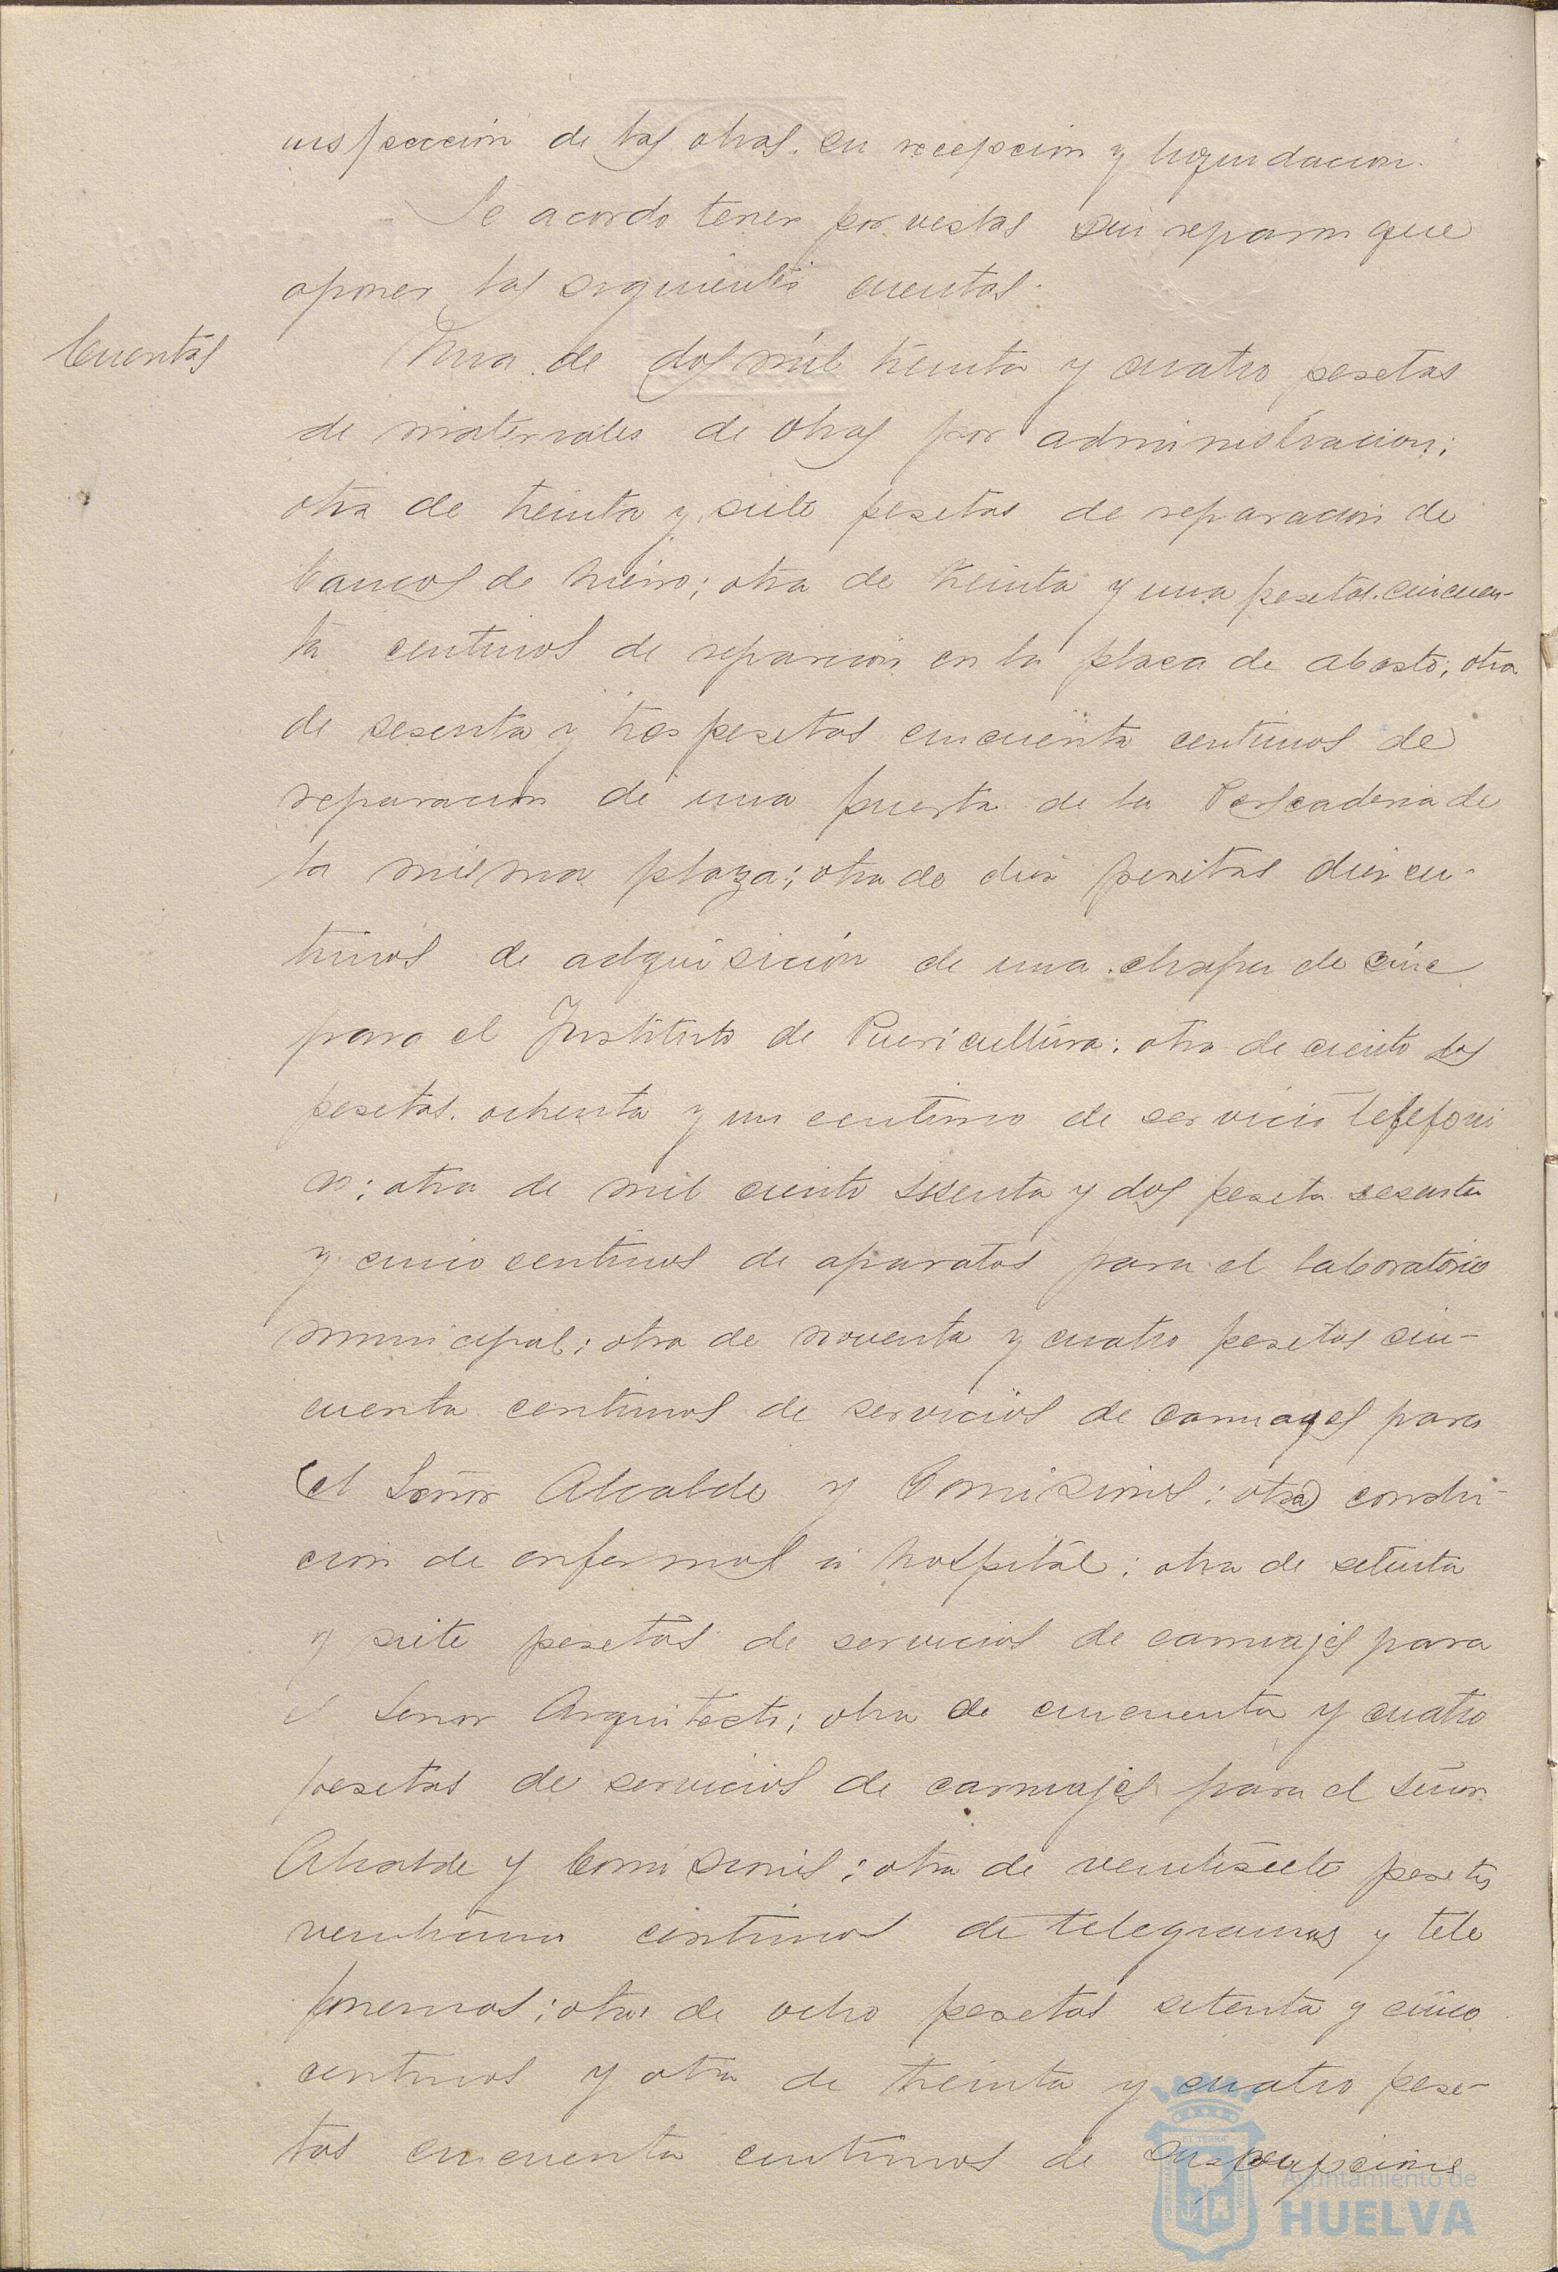 inspección de las obras. su recepcion y liquidacion.
Se acordo tener por vistas sin reparos que
oponer las siguientes cuentas.
Cuentas
Una de dos mil treinta y cuatro pesetas
de materiales de obras por administracion;
otra de treinta y siete pesetas de reparacion de
bancos de hierro; otra de treinta y una pesetas. cincuen-
ta centimos de reparacion en la plaza de abasto; otra
de sesenta y tres pesetas cincuenta centimos de
reparacion de una puerta de la Pescaderia de
la misma plaza; otra de diez pesetas diez cen-
timos de adquisición de una chapa de cinc
para el Instituto de Puericultura; otra de ciento dos
pesetas. ochenta y un centimo de servicio telefoni
co; otra de mil ciento sesenta y dos peseta sesenta
y cinco centimos de aparatos para el laboratorio
municipal; otra de noventa y cuatro pesetas cin-
cuenta centimos de servicios de carruages para
el Señor Alcalde y Comisiones; otra conduc-
cion de enfermos á hospital; otra de setenta
y siete pesetas de servicios de carruajes para
el Señor Arquitecto; otra de cincuenta y cuatro
pesetas de servicios de carruajes para el Señor
Alcalde y Comisiones; otra de veintisiete pesetas
veintiuno centimos de telegramas y tele
fonemas; otra de ocho pesetas setenta y cinco
centimos y otra de treinta y cuatro pese-
tas cincuenta centimos de suscripciones
Ayuntamiento de
HUELVA